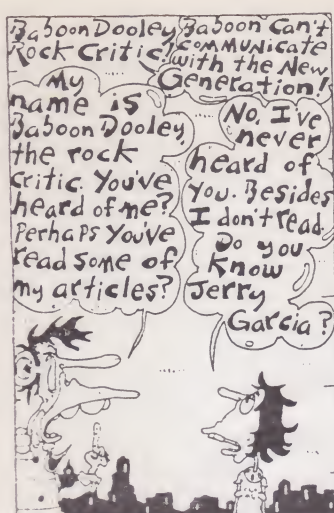 Baboon Dooley
Rock Critic!
Baboon Can't
communicate
with the New
Generation!
My
name is
Baboon Dooley,
the rock
critic. You've
heard of me?
Perhaps you've
read some of
my articles?
No, I've
never
heard of
you. Besides
I don't read.
Do you
Know
Jerry
Garcia?